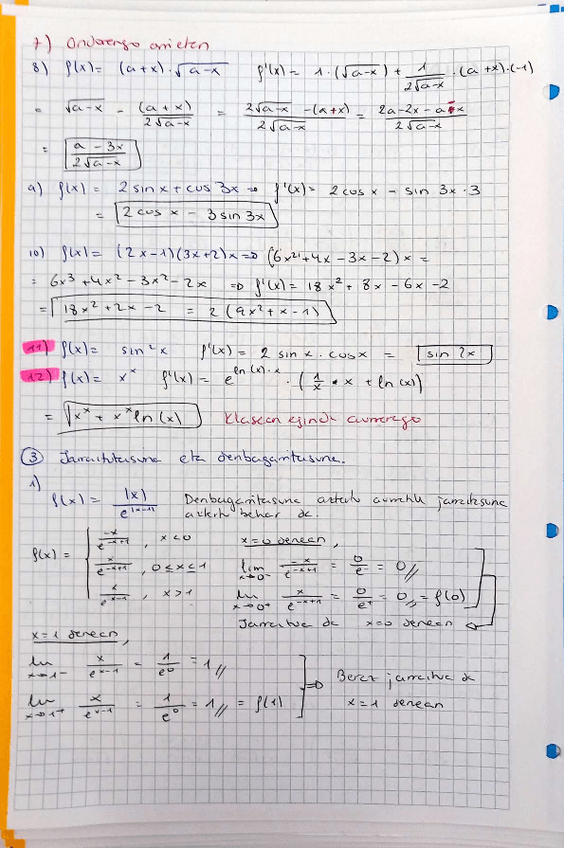 7) Ondorengo orrietan
8) f(x) = (a+x)·√a-x   f'(x) = 1·(√a-x) + 1/2√a-x ·(a+x)·(-1)
= √a-x - (a+x)/2√a-x = 2√a-x -(a+x)/2√a-x = 2a-2x-a-x/2√a-x
= a-3x/2√a-x
9) f(x) = 2 sin x + cos 3x ⇒ f'(x) = 2 cos x - sin 3x·3
= 2 cos x - 3 sin 3x
10) f(x) = (2x-1)(3x+2)x ⇒ (6x²+4x-3x-2)x =
= 6x³+4x²-3x²-2x ⇒ f'(x) = 18x²+8x-6x-2
= 18x²+2x-2 = 2(9x²+x-1)
11) f(x) = sin²x   f'(x) = 2 sin x · cos x = sin 2x
12) f(x) = x^x   f'(x) = e^ln(x)·x · (1/x · x + ln(x))
= x^x + x^x ln(x)   Klasean eginda aurrerago
3 Jarraitutasuna eta deribagarritasuna.
1)
f(x) = |x|/e^|x-1|   Deribagarritasuna aztertu aurretik jarraitasuna
aztertu behar da.
f(x) = { -x/e^-x+1, x<0   x=0 denean,
x/e^-x+1, 0≤x≤1   lim x→0⁻ -x/e^-x+1 = 0/e = 0//
x/e^x-1, x>1   lim x→0⁺ x/e^-x+1 = 0/e = 0// = f(0)
Jarraitua da x=0 denean
x=1 denean,
lim x→1⁻ x/e^x-1 = 1/e⁰ = 1//   ⇒ Beraz jarraitua da
lim x→1⁺ x/e^x-1 = 1/e⁰ = 1// = f(1)   x=1 denean